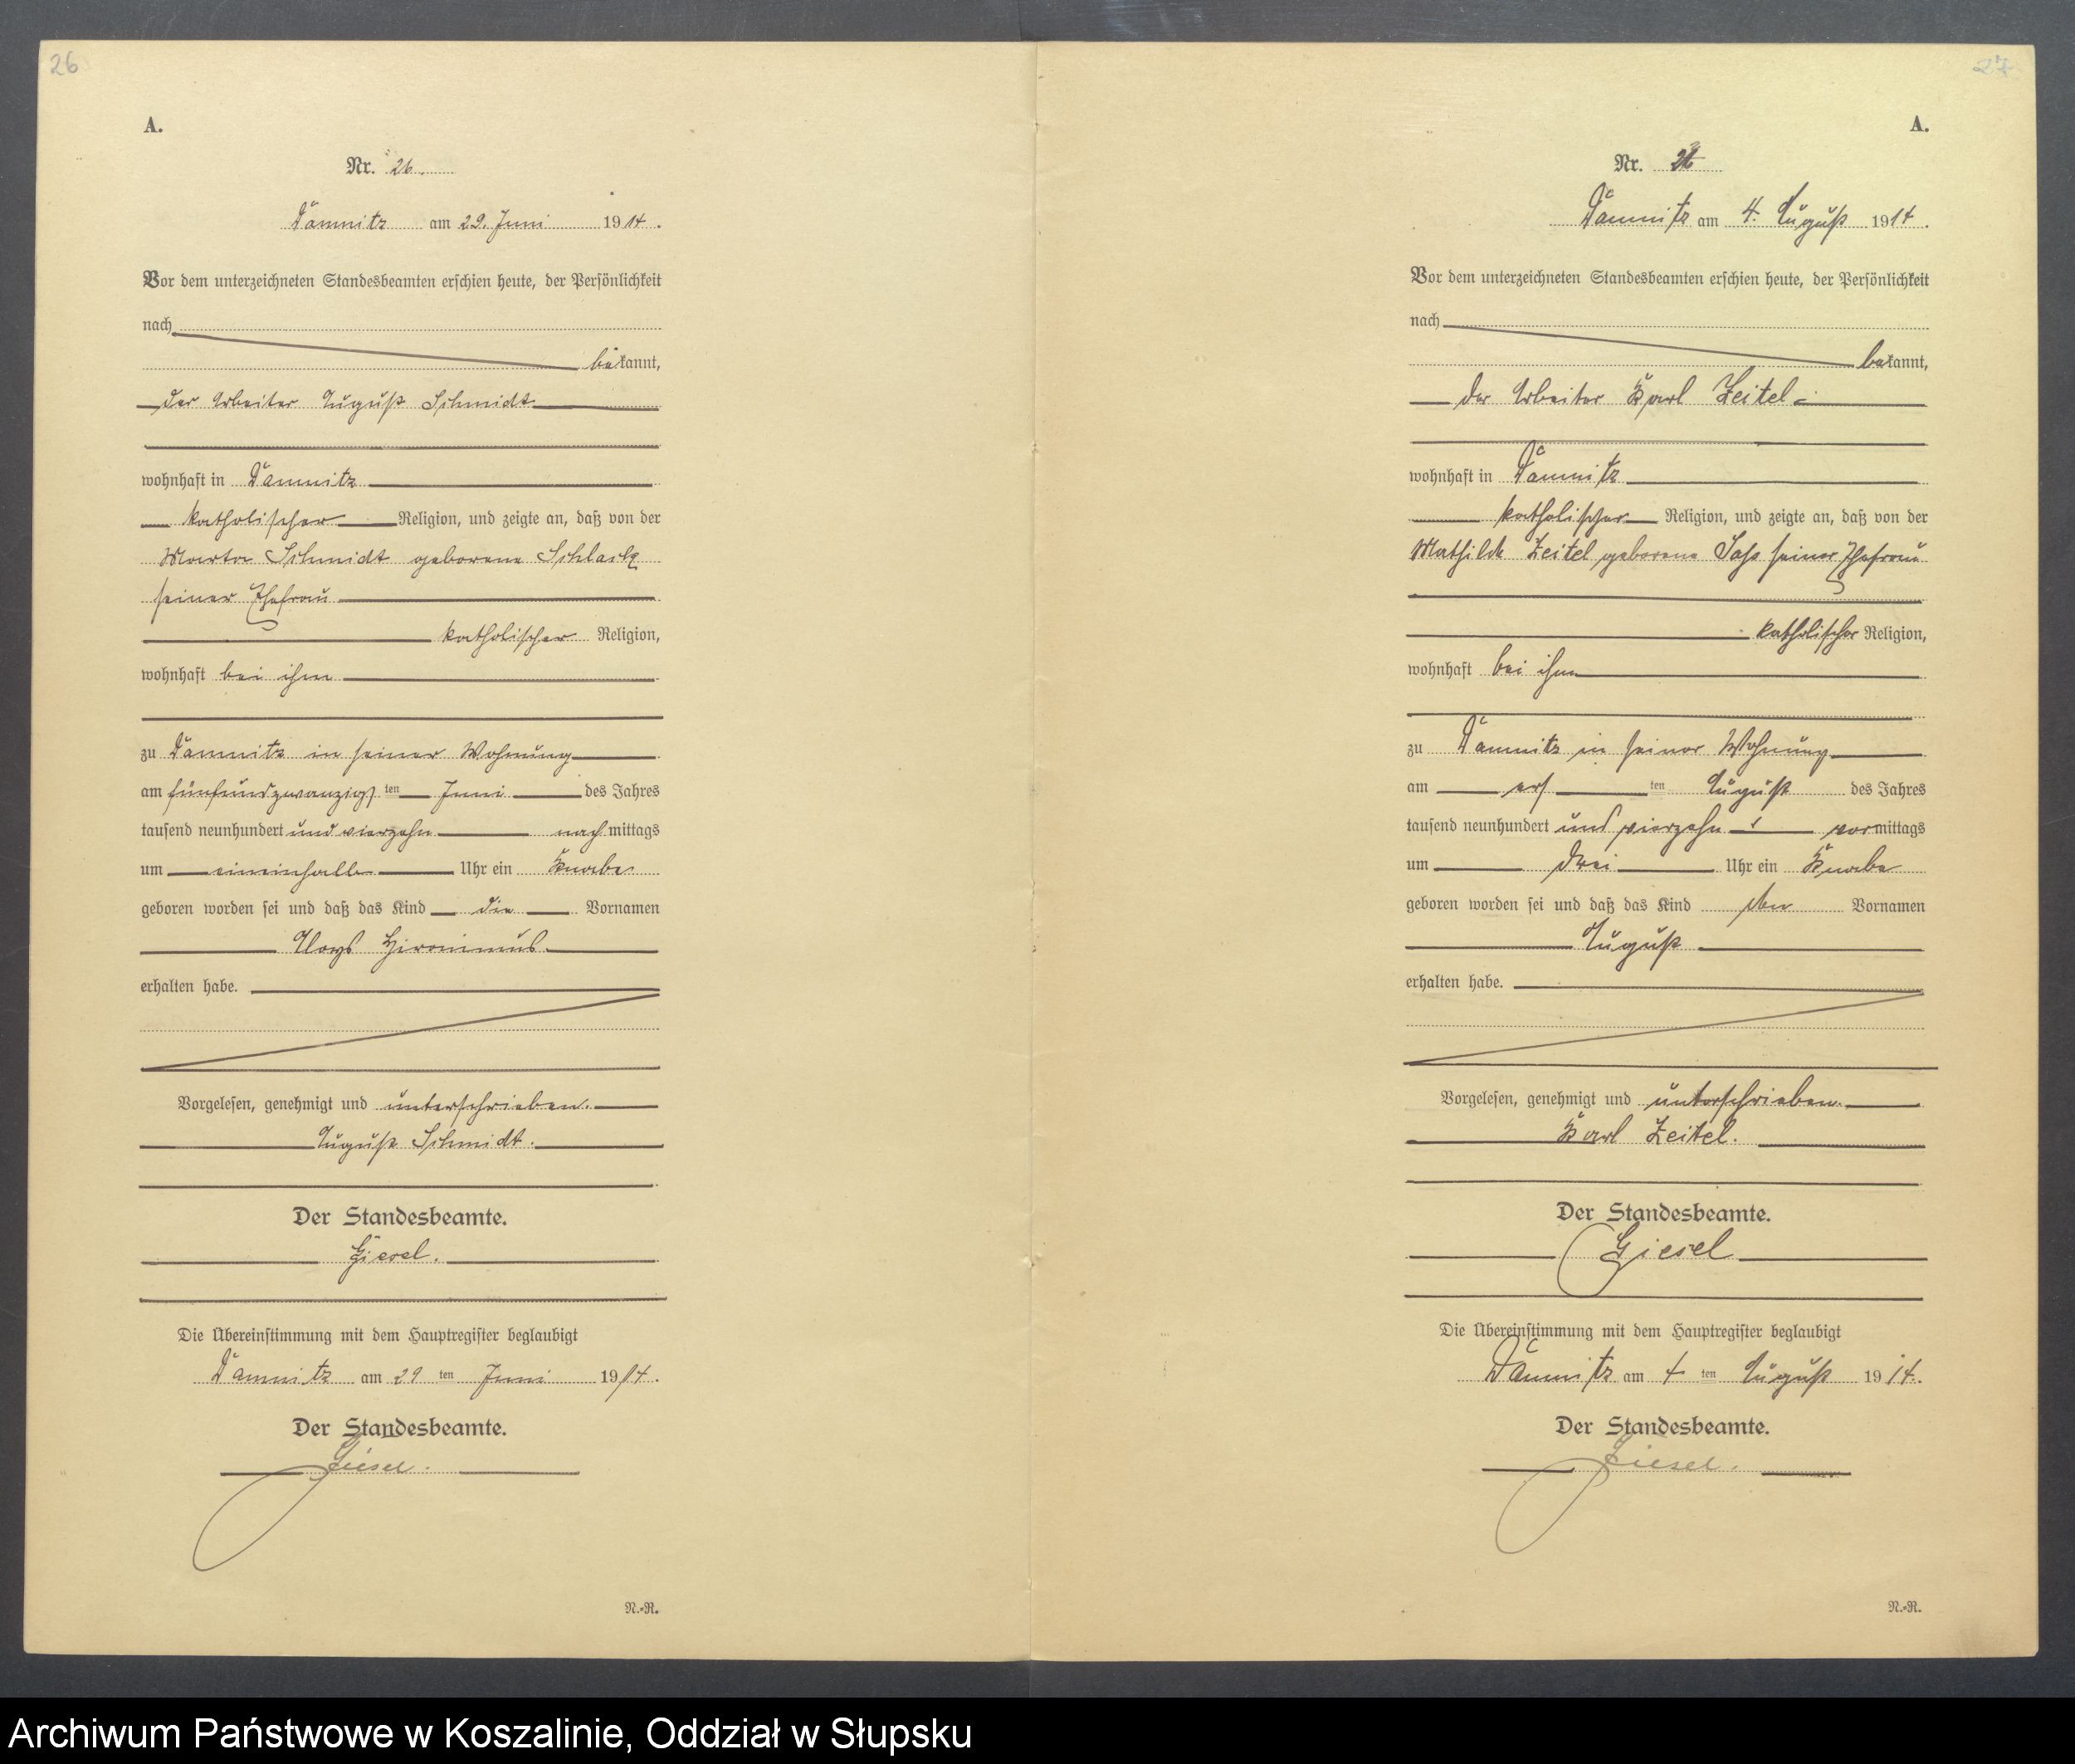 26
A.
Nr. 26.
Damnitz am 29. Juni 1914.
Vor dem unterzeichneten Standesbeamten erschien heute, der Persönlichkeit
nach
bekannt,
der Arbeiter August Schmidt
wohnhaft in Damnitz
katholischer Religion, und zeigte an, daß von der
Marta Schmidt geborene
seiner Ehefrau
katholischer Religion,
wohnhaft bei ihm
zu Damnitz in seiner Wohnung
am fünfundzwanzigsten Juni des Jahres
tausend neunhundert und vierzehn nachmittags
um eineinhalb Uhr ein Knabe
geboren worden sei und daß das Kind die Vornamen
Aloys Hironimus
erhalten habe.
Vorgelesen, genehmigt und unterschrieben.
August Schmidt.
Der Standesbeamte.
Giesel.
Die Übereinstimmung mit dem Hauptregister beglaubigt
Damnitz am 29 ten Juni 1914.
Der Standesbeamte.
Giesel.
N.-R.
27
A.
Nr.
Damnitz am 4. August 1914.
Vor dem unterzeichneten Standesbeamten erschien heute, der Persönlichkeit
nach
bekannt,
der Arbeiter Karl Zeitel
wohnhaft in Damnitz
katholischer Religion, und zeigte an, daß von der
Mathilde Zeitel geborene seiner Ehefrau
katholischer Religion,
wohnhaft bei ihm
zu Damnitz in seiner Wohnung
am ersten August des Jahres
tausend neunhundert und vierzehn vormittags
um drei Uhr ein Knabe
geboren worden sei und daß das Kind den Vornamen
August
erhalten habe.
Vorgelesen, genehmigt und unterschrieben.
Karl Zeitel.
Der Standesbeamte.
Giesel
Die Übereinstimmung mit dem Hauptregister beglaubigt
Damnitz am 4 ten August 1914.
Der Standesbeamte.
Giesel.
N.-R.
Archiwum Państwowe w Koszalinie, Oddział w Słupsku